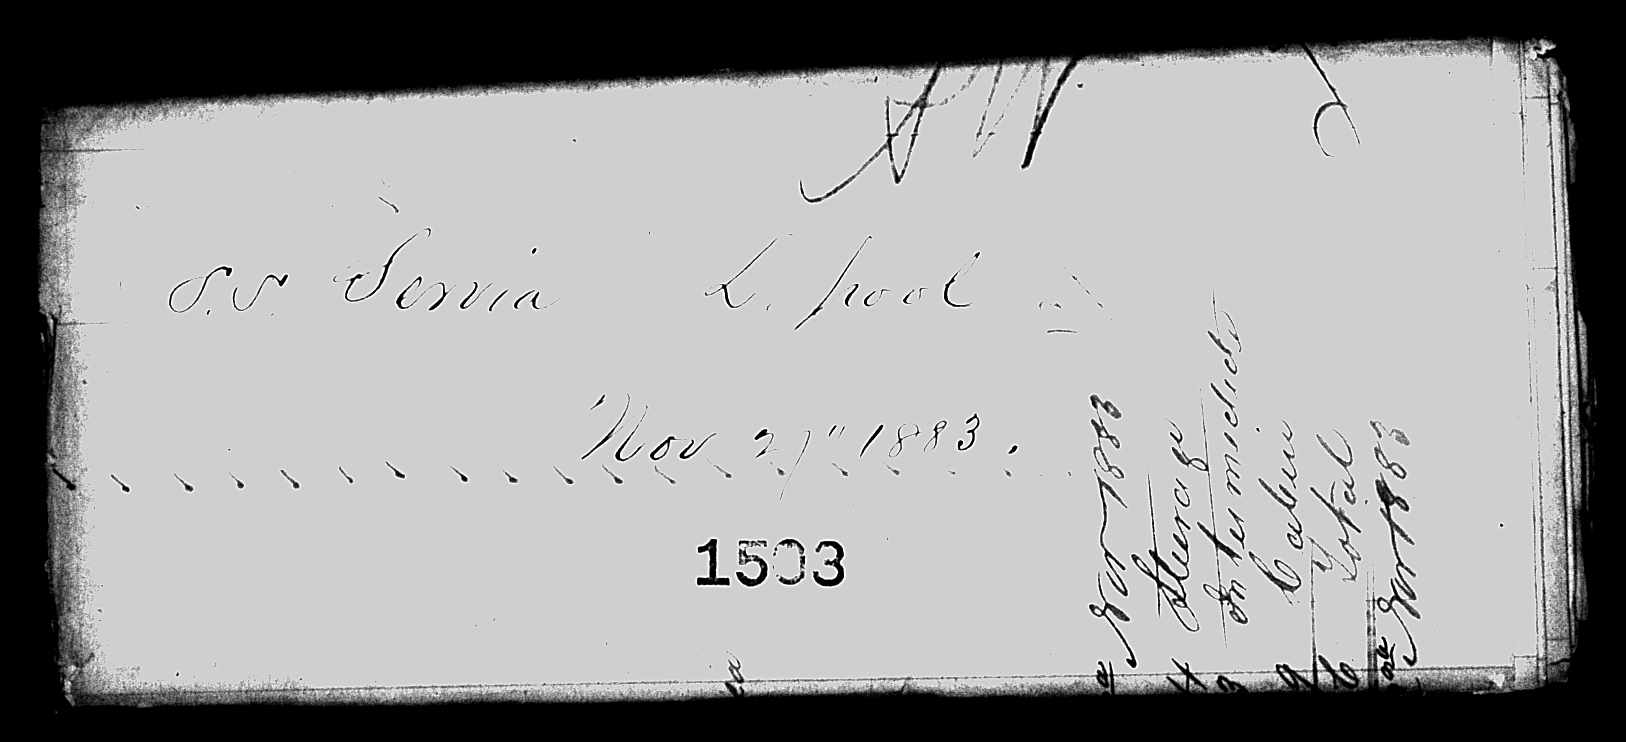 S.S. Servia L.pool
Nov 27" 1883.
1503
Nov 1883
4 Steerage
3 Intermediate
9 Cabin
6 Total
Nov 1883